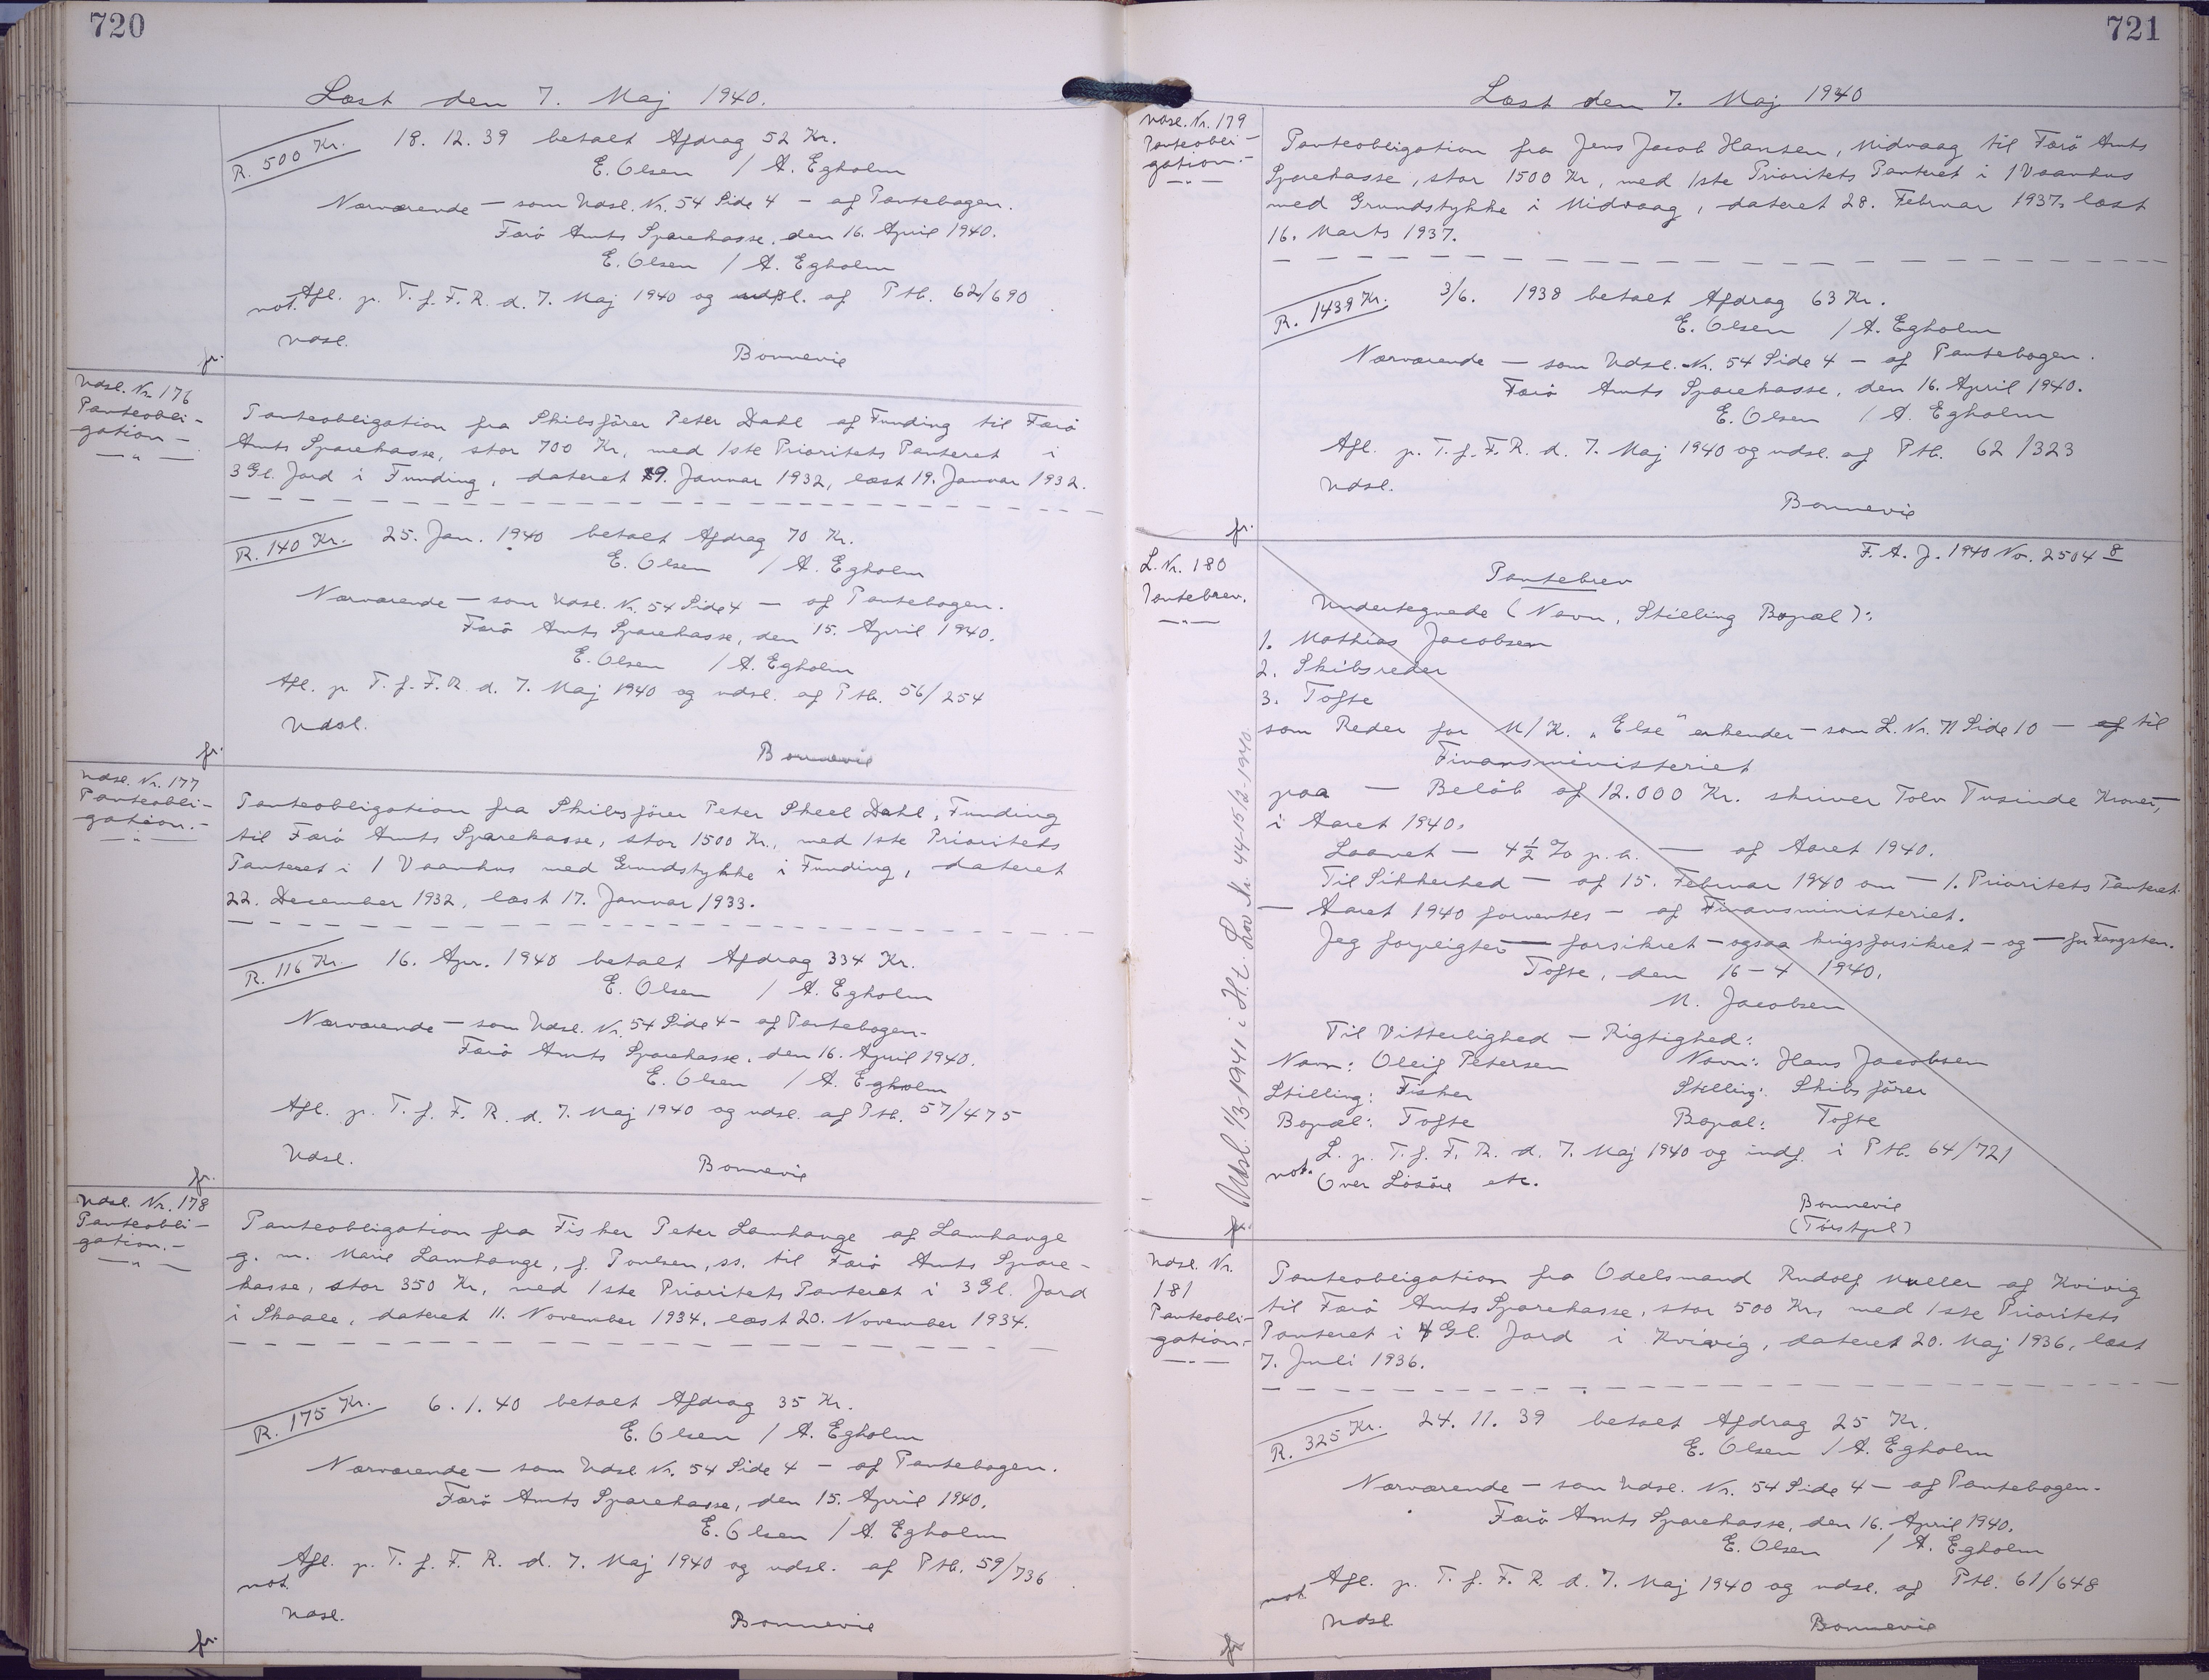 720
Læst den 7. Maj 1940.
R. 500 Kr.
18. 12. 39 betalt Afdrag 52 Kr.
E. Olsen / A. Egholm
Nærværende — som Udsl. Nr. 54 Side 4 — af Pantebogen.
Færö Amts Sparekasse, den 16. April 1940.
E. Olsen / A. Egholm
Afl. p. T. f. F. R. d. 7. Maj 1940 og udsl. af Ptb. 62/690
not.
Udsl.
Bonnevie
fr.
Udsl. Nr. 176
Panteobli-
gation —
— " —
Panteobligation fra Skibsförer Peter Dahl af Funding til Færö
Amts Sparekasse, stor 700 Kr, med 1ste Prioritets Panteret i
3 Gl. Jord i Funding, dateret 19. Januar 1932, læst 19. Januar 1932.
R. 140 Kr.
25. Jan. 1940 betalt Afdrag 70 Kr.
E. Olsen / A. Egholm
Nærværende — som Udsl. Nr. 54 Side 4 — af Pantebogen.
Færö Amts Sparekasse, den 15. April 1940.
E. Olsen / A. Egholm
Afl. p. T. f. F. R. d. 7. Maj 1940 og udsl. af Ptb. 56/254
Udsl.
Bonnevie
fr.
Udsl. Nr. 177
Panteobli-
gation. —
— " —
Panteobligation fra Skibsförer Peter Skeel Dahl, Funding
til Færö Amts Sparekasse, stor 1500 Kr., med 1ste Prioritets
Panteret i 1 Vaanhus med Grundstykke i Funding, dateret
22. December 1932, læst 17. Januar 1933.
R. 116 Kr.
16. Apr. 1940 betalt Afdrag 334 Kr.
E. Olsen / A. Egholm
Nærværende — som Udsl. Nr. 54 Side 4 — af Pantebogen —
Færö Amts Sparekasse, den 16. April 1940.
E. Olsen / A. Egholm
Afl. p. T. f. F. R. d. 7. Maj 1940 og udsl. af Ptb. 57/475
Udsl.
Bonnevie
fr.
Udsl. Nr. 178
Panteobli-
gation. —
— " —
Panteobligation fra Fisker Peter Lamhauge af Lamhauge
g. m. Marie Lamhauge, f. Poulsen, ss. til Færö Amts Spare-
kasse, stor 350 Kr, med 1ste Prioritets Panteret i 3 Gl. Jord
i Skaale, dateret 11. November 1934, læst 20. November 1934.
R. 175 Kr.
6. 1. 40 betalt Afdrag 35 Kr.
E. Olsen / A. Egholm
Nærværende — som Udsl. Nr. 54 Side 4 — af Pantebogen.
Færö Amts Sparekasse, den 15. April 1940.
E. Olsen / A. Egholm
Afl. p. T. f. F. R. d. 7. Maj 1940 og udsl. af Ptb. 59/736
not.
Udsl.
Bonnevie
fr.
721
Læst den 7. Maj 1940
Udsl. Nr. 179
Panteobli-
gation. —
— " —
Panteobligation fra Jens Jacob Hansen, Midvaag til Færö Amts
Sparekasse, stor 1500 Kr, med 1ste Prioritets Panteret i 1 Vaanhus
med Grundstykke i Midvaag, dateret 28. Februar 1937, læst
16. Marts 1937.
R. 1439 Kr.
3/6. 1938 betalt Afdrag 63 Kr.
E. Olsen / A. Egholm
Nærværende — som Udsl. Nr. 54 Side 4 — af Pantebogen.
Færö Amts Sparekasse, den 16. April 1940.
E. Olsen / A. Egholm
Afl. p. T. f. F. R. d. 7. Maj 1940 og udsl. af Ptb. 62/323
Udsl.
Bonnevie
fr.
L. Nr. 180
Pantebrev.
— " —
F. A. J. 1940 No. 2504 8
Pantebrev
Undertegnede (Navn, Stilling Bopæl):
1. Mathias Jacobsen
2. Skibsreder
3. Tofte
som Reder for M/K. „Else" erkender — som L. Nr. 71 Side 10 — af til
Finansministeriet
paa — Belöb af 12.000 Kr. skriver Tolv Tusinde Kroner,
i Aaret 1940.
Laanet — 4½ % p. a. — af Aaret 1940.
Til Sikkerhed — af 15. Februar 1940 om — 1. Prioritets Panteret.
— Aaret 1940 forventes — af Finansministeriet.
Jeg forpligter — forsikret — ogsaa krigsforsikret — og — for Fangsten.
Tofte, den 16-4 1940.
M. Jacobsen
Til Vitterlighed — Rigtighed:
Navn: Oleif Petersen Navn: Hans Jacobsen
Stilling: Fisker Stilling: Skibsförer
Bopæl: Tofte Bopæl: Tofte
L. p. T. f. F. R. d. 7. Maj 1940 og indf. i Ptb. 64/721
not. Over Lösöre etc.
Bonnevie
Udsl. 1/3-1941 i H.t. Lov Nr. 44-15/2-1940.
fr.
Udsl. Nr.
181
Panteobli-
gation. —
— " —
Panteobligation fra Odelsmand Rudolf Müller af Kvivig
til Færö Amts Sparekasse, stor 500 Kr, med 1ste Prioritets
Panteret i 4 Gl. Jord i Kvivig, dateret 20. Maj 1936, læst
7. Juli 1936.
R. 325 Kr.
24. 11. 39 betalt Afdrag 25 Kr.
E. Olsen / A. Egholm
Nærværende — som Udsl. Nr. 54 Side 4 — af Pantebogen —
Færö Amts Sparekasse, den 16. April 1940.
E. Olsen / A. Egholm
Afl. p. T. f. F. R. d. 7. Maj 1940 og udsl. af Ptb. 61/648
not.
Udsl.
Bonnevie
fr.